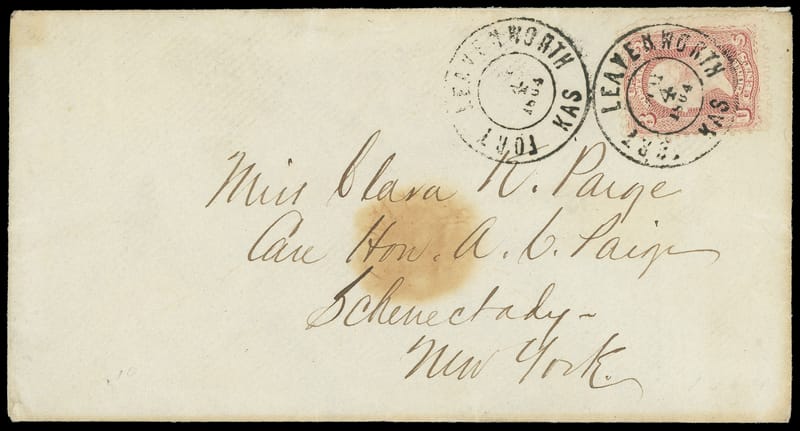 FORT LEAVENWORTH KAS
1864
FORT LEAVENWORTH KAS
1864
Miss Clara K. Paige
Care Hon. A. C. Paige
Schenectady-
New York.